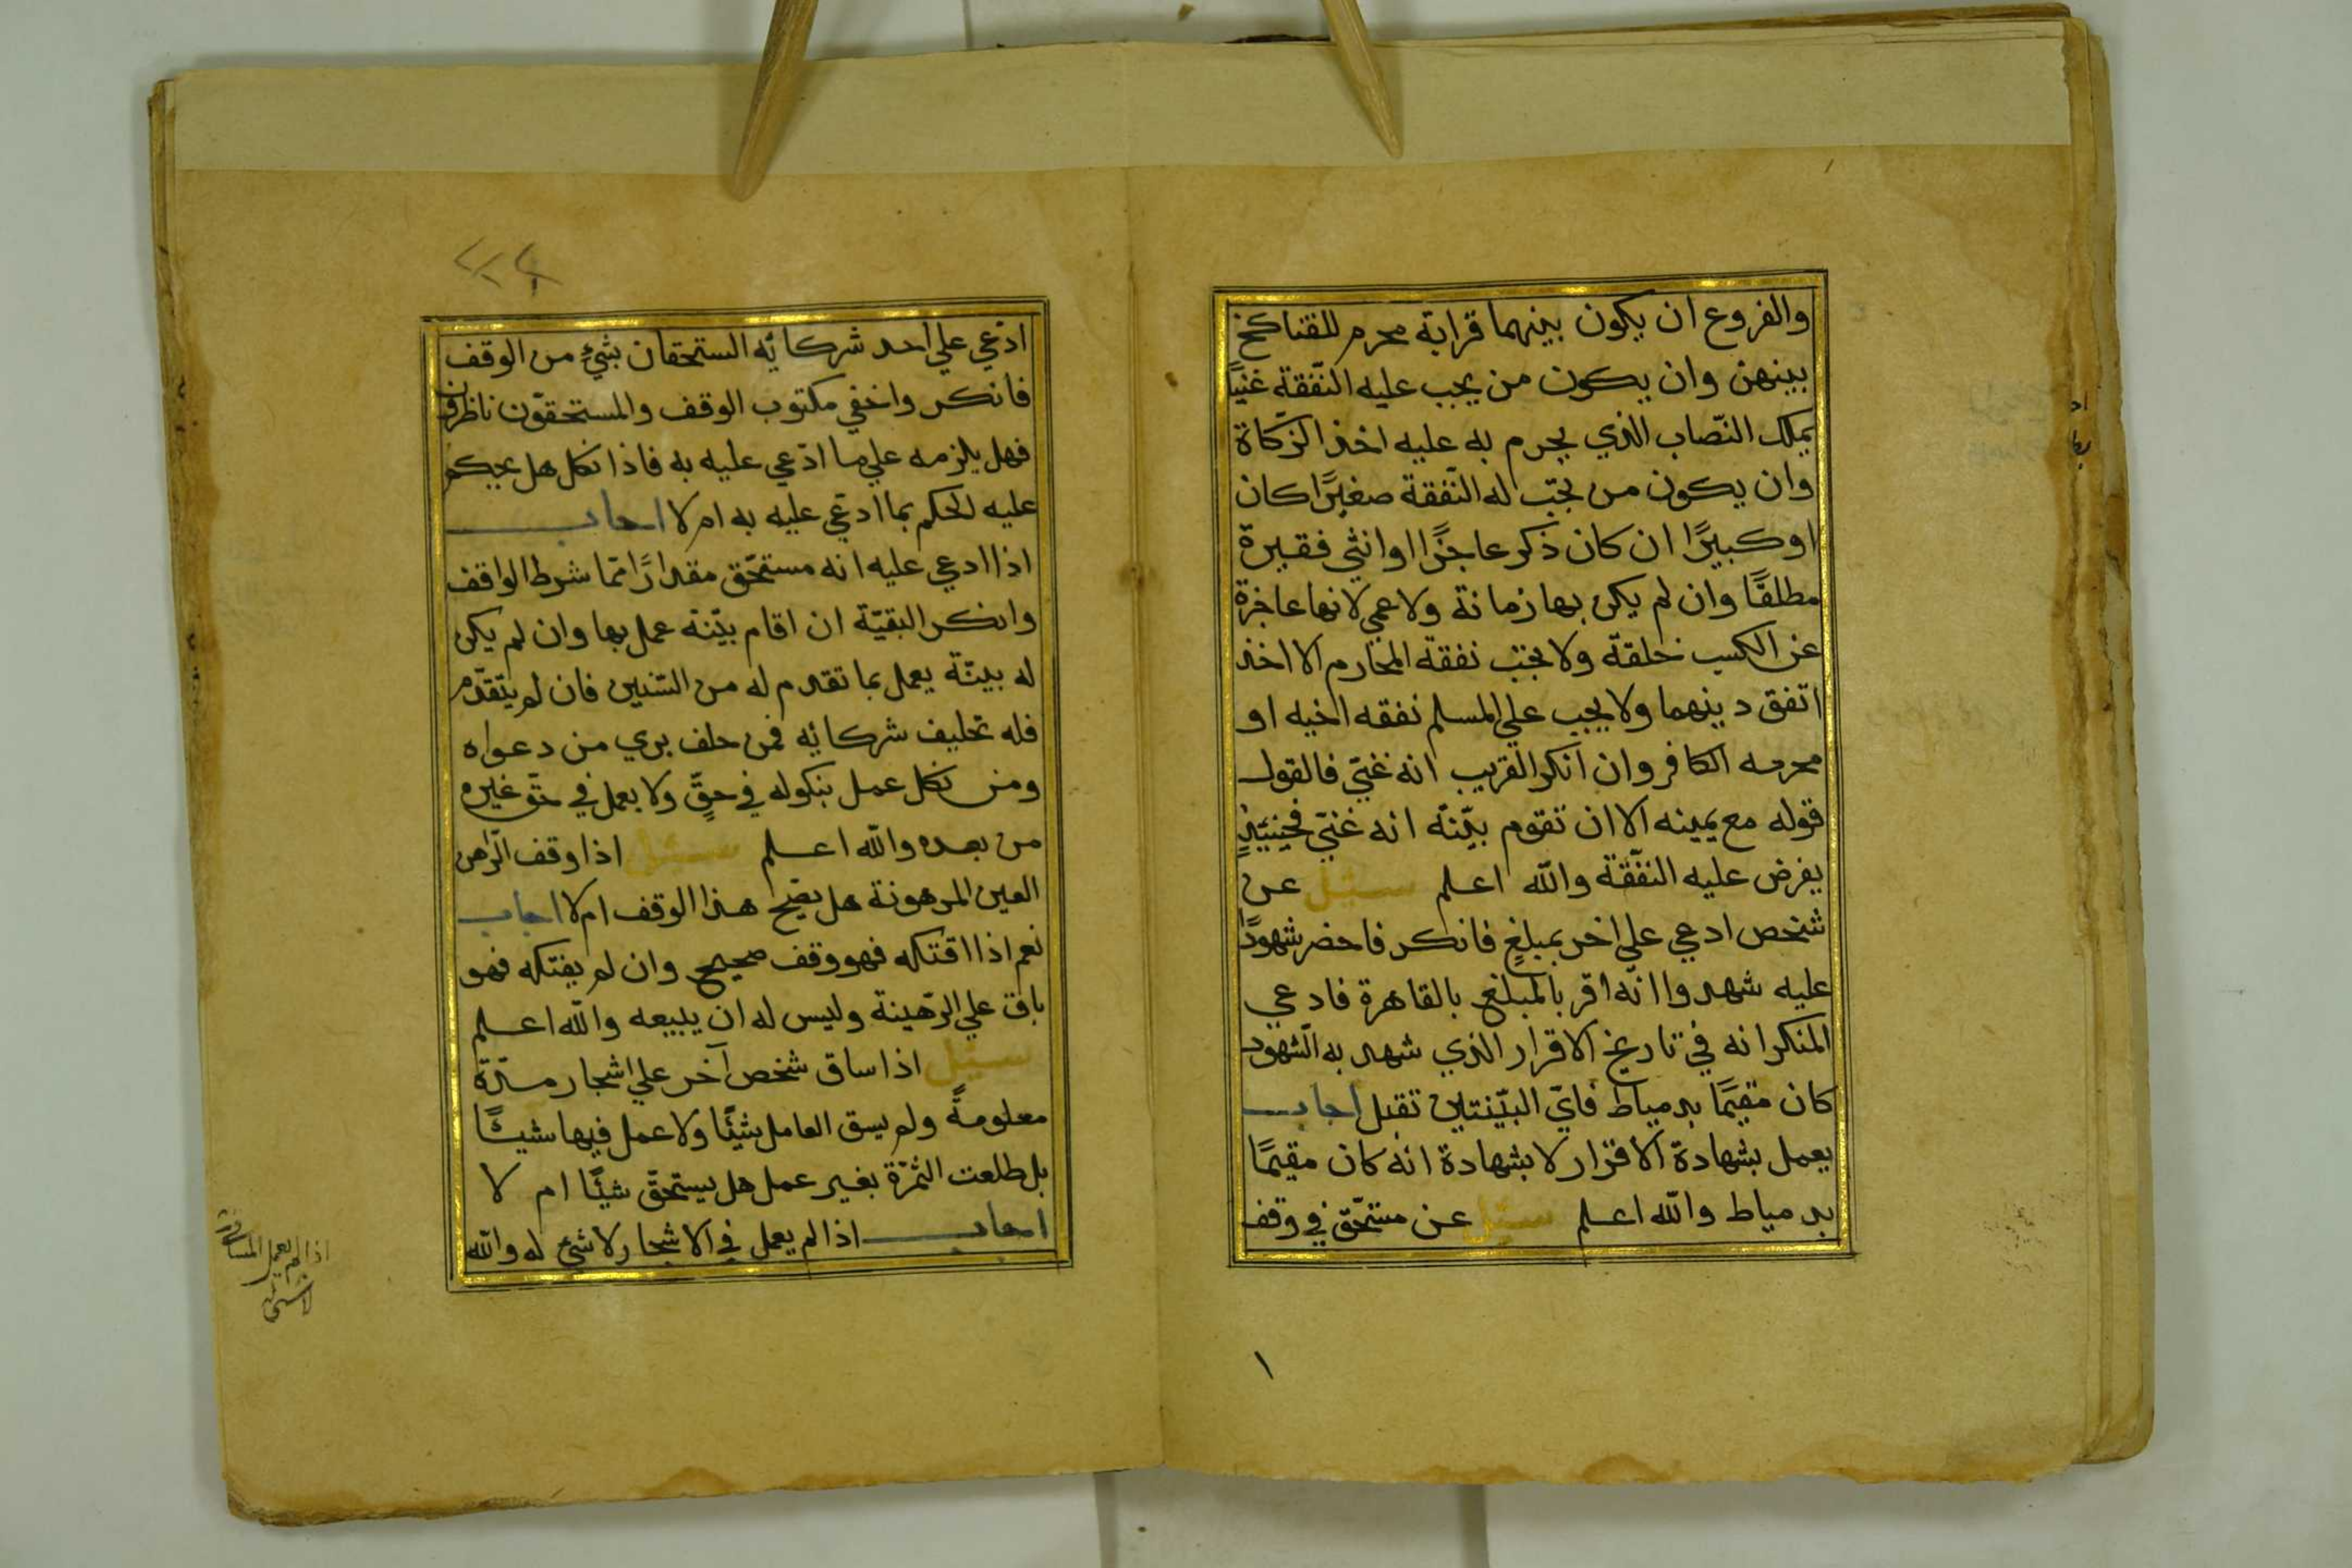 والفروع ان يكون بينهما قرابة محرم للقناكح
بينهن وان يكون من يجب عليه النّفقة غنيًا
يملك النّصاب الذي يحرم به عليه اخذ الزّكاة
وان يكون من تجبّ له النّفقة صغيرًا كان
او كبيرًا ان كان ذكر عاجزًا او انثي فقيرة
مطلقًا وان لم يكن بها زمانة ولا عمي لانها عاجزة
عن الكسب خلقة ولا تجبّ نفقة المحارم الا اخذ
اتفق دينهما ولا يجب علي المسلم نفقه اخيه او
محرمه الكافر وان انكر القريب انه غنيّ فالقول
قوله مع يمينه الا ان تقوم بيّنة انه غنيّ فحينيئذٍ
يفرض عليه النّفقة والله اعلم سئل عن
شخص ادعي علي اخر بمبلغٍ فانكر فاحضر شهودًا
عليه شهدوا انّه اقر بالمبلغ بالقاهرة فادعي
المنكر انه في تاريخ الاقرار الذي شهد به الشّهود
كان مقيمًا بدمياط فايّ البيّنتين تقبل اجاب
يعمل بشهادة الاقرار لا بشهادة انه كان مقيمًا
بدمياط والله اعلم سئل عن مستحّق في وقف
١
ادّعي علي احد شركائه المستحقان بشيءٍ من الوقف
فانكر واخفي مكتوب الوقف والمستحقوّن ناظرون
فهل يلزمه علي ما ادّعي عليه به فاذا نكل هل يحكم
عليه لحكم بما ادّعي عليه به ام لا اجاب
اذا ادعي عليه انه مستحّق مقدارًا ممّا شرط الواقف
وانكر البقيّة ان اقام بيّنة عمل بها وان لم يكن
له بينّة يعمل بما تقدم له من السّنين فان لم يتقدّم
فله تحليف شركائه فمن حلف بري من دعواه
ومن نكل عمل بنكوله في حقٍّ ولا يعمل في حقّ غيره
من بعده والله اعلم سئل اذا وقف الرّاهن
العين المرهونة هل يصّح هذا الوقف ام لا اجاب
نعم اذا افتكه فهو وقف صحيح وان لم يفتكه فهو
باق علي الرّهينة وليس له ان يبيعه والله اعلم
سئل اذا ساق شخص آخر علي اشجار مدّة
معلومةً ولم يسق العامل شيئًا ولا عمل فيها شيئًا
بل طلعت الثمرّة بغير عمل هل يستحقّ شيئًا ام لا
اجاب اذا لم يعمل في الاشجار لا شئ له والله
اذا لم يعمل المساقي
لا شئ له